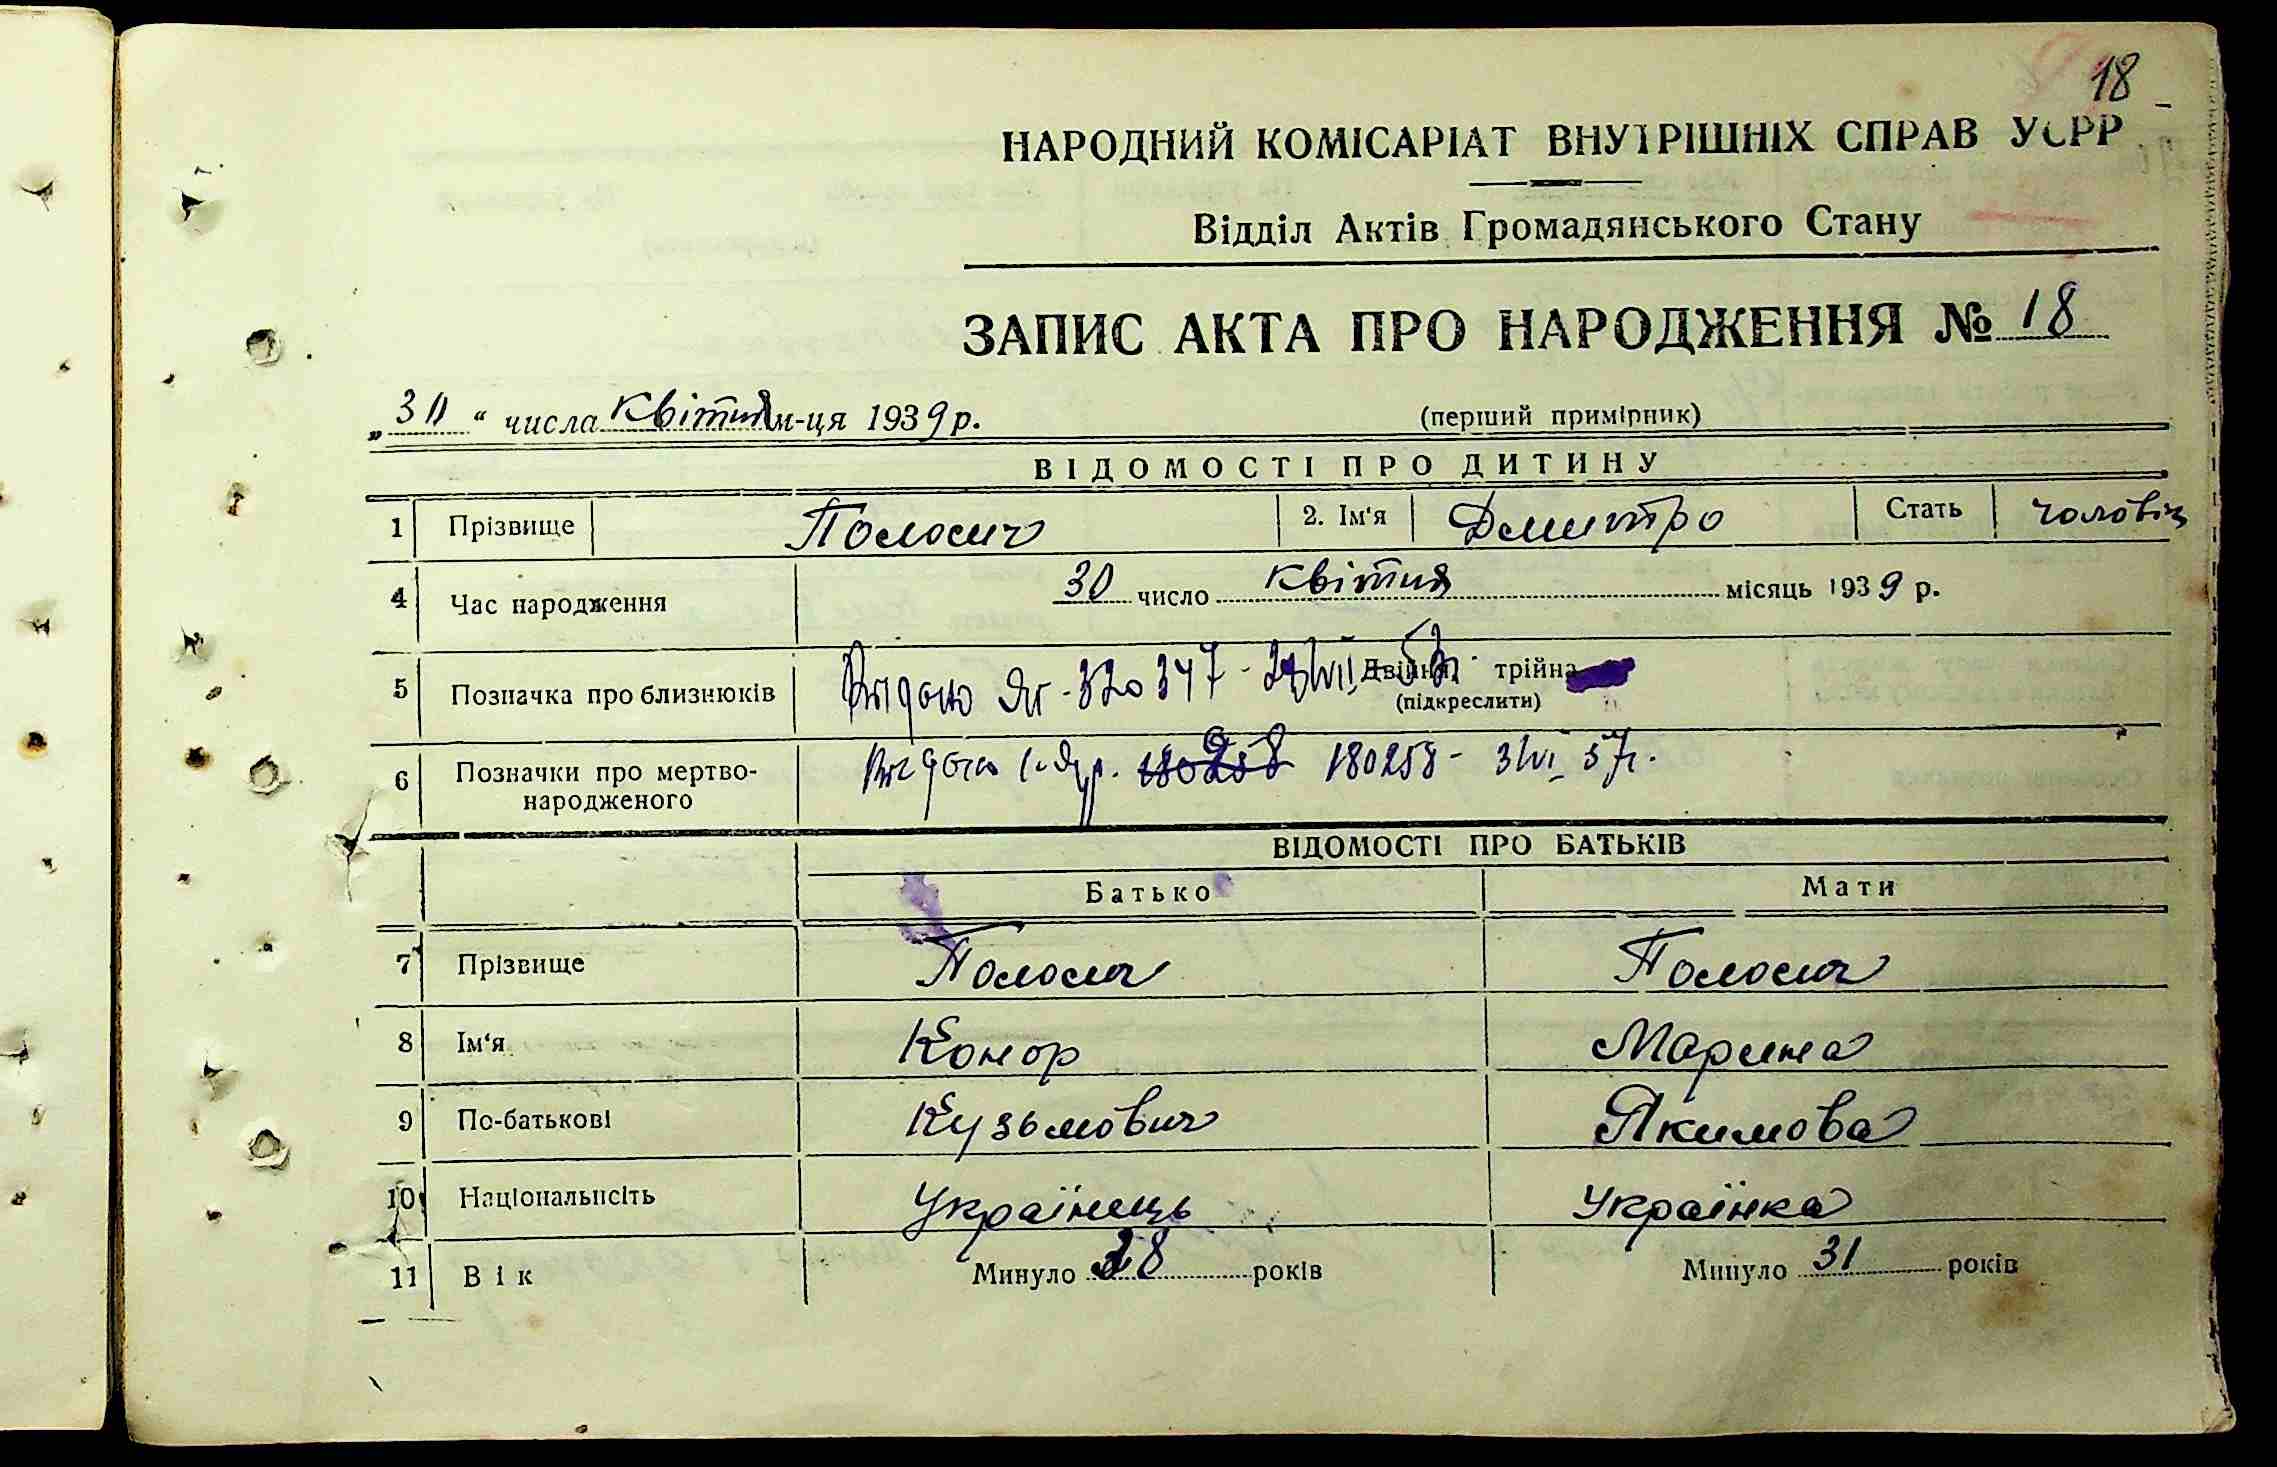 18
НАРОДНИЙ КОМІСАРІАТ ВНУТРІШНІХ СПРАВ УСРР
Відділ Актів Громадянського Стану
ЗАПИС АКТА ПРО НАРОДЖЕННЯ № 18
„30“ числа квітня м-ця 1939 р. (перший примірник)
ВІДОМОСТІ ПРО ДИТИНУ
1 Прізвище Полосич 2. Ім'я Дмитро Стать чоловіч
4 Час народження 30 число квітня місяць 1939 р.
5 Позначка про близнюків Видано 320347 Двійня трійня
(підкреслити)
6 Позначки про мертво- Видано 180258 180258 - 3/VI 57г.
народженого
ВІДОМОСТІ ПРО БАТЬКІВ
Батько Мати
7 Прізвище Полосич Полосич
8 Ім'я Конор Марина
9 По-батькові Кузьмович Якимова
10 Національнсіть Українець Українка
11 Вік Минуло 28 років Минуло 31 років